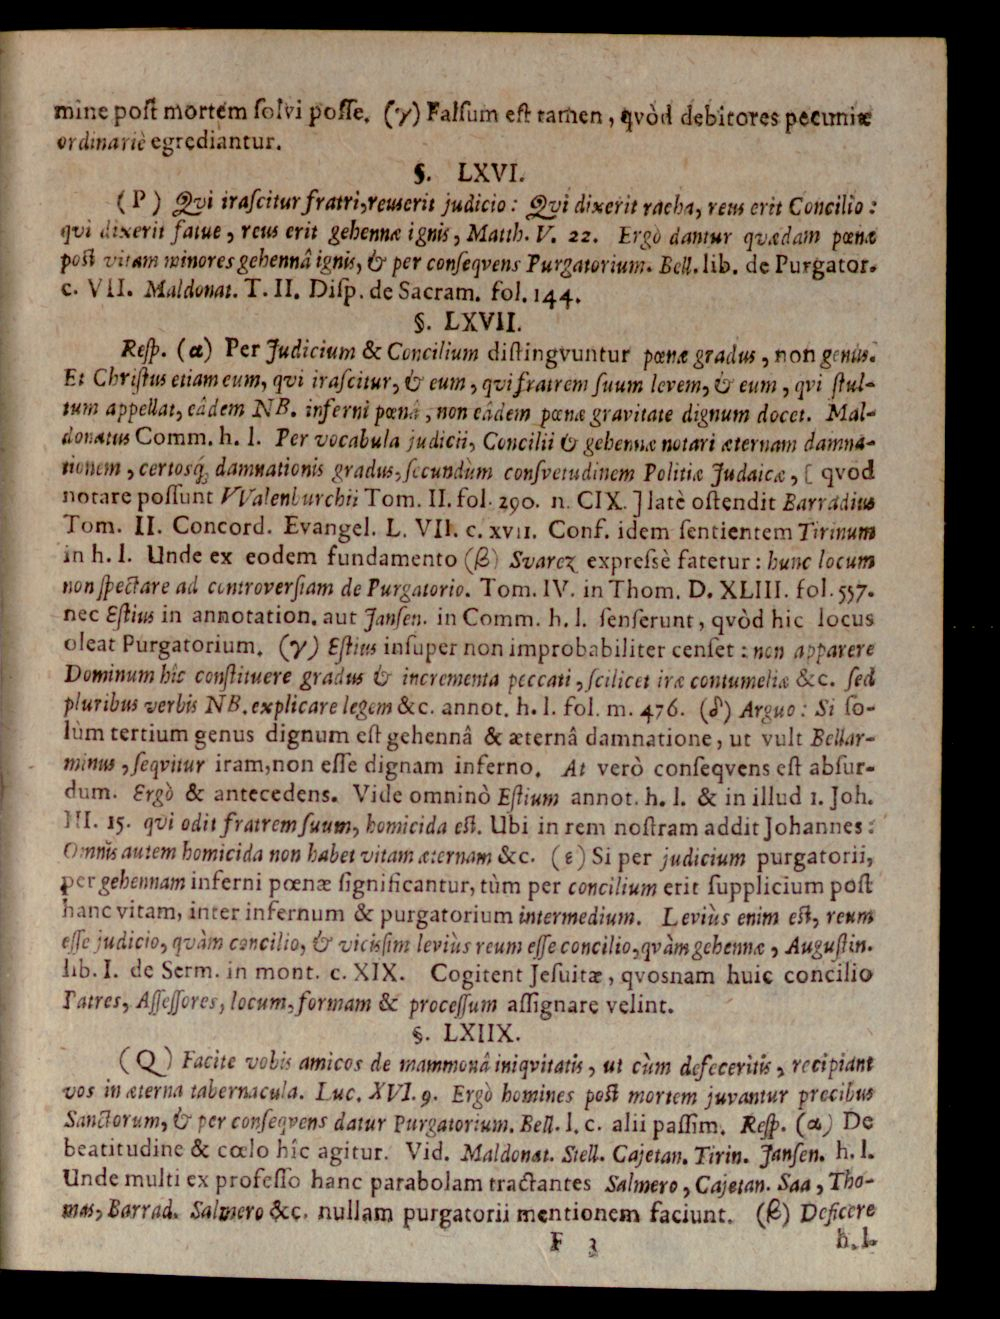 mine post mortem solvi posse. (γ) Falsum est tamen, qvòd debitores pecuniæ
ordinariè egrediantur.
§. LXVI.
(P) Qvi irascitur fratri, reus erit judicio: Qvi dixerit racha, reus erit Concilio:
qvi dixerit fatue, reus erit gehennæ ignis, Matth. V. 22. Ergò dantur qvædam pœnæ
post vitam minores gehennâ ignis, & per conseqvens Purgatorium. Bell. lib. de Purgator.
c. VII. Maldonat. T. II. Disp. de Sacram. fol. 144.
§. LXVII.
Resp. (α) Per Judicium & Concilium distingvuntur pœnæ gradus, non genus.
Et Christus etiam eum, qvi irascitur, & eum, qvi fratrem suum levem, & eum, qvi stul-
tum appellat, eâdem NB. inferni pœnâ, non eâdem pœnæ gravitate dignum docet. Mal-
donatus Comm. h. l. Per vocabula judicii, Concilii & gehennæ notari æternam damna-
tionem, certosq; damnationis gradus, secundùm consvetudinem Politiæ Judaicæ, [ qvod
notare possunt VValenburchii Tom. II. fol. 290. n. CIX. ] latè ostendit Barradius
Tom. II. Concord. Evangel. L. VII. c. XVII. Conf. idem sentientem Tirinum
in h. l. Unde ex eodem fundamento (β) Svarez expressè fatetur: hunc locum
non spectare ad controversiam de Purgatorio. Tom. IV. in Thom. D. XLIII. fol. 557.
nec Estius in annotation. aut Jansen. in Comm. h. l. senserunt, qvòd hic locus
oleat Purgatorium. (γ) Estius insuper non improbabiliter censet: non apparere
Dominum hîc constituere gradus & incrementa peccati, scilicet iræ contumeliæ &c. sed
pluribus verbis NB. explicare legem &c. annot. h. l. fol. m. 476. (δ) Arguo: Si so-
lùm tertium genus dignum est gehennâ & æternâ damnatione, ut vult Bellar-
minus, seqvitur iram, non esse dignam inferno. At verò conseqvens est absur-
dum. Ergò & antecedens. Vide omninò Estium annot. h. l. & in illud 1. Joh.
III. 15. qvi odit fratrem suum, homicida est. Ubi in rem nostram addit Johannes:
Omnis autem homicida non habet vitam æternam &c. (ε) Si per judicium purgatorii,
per gehennam inferni pœnæ significantur, tùm per concilium erit supplicium post
hanc vitam, inter infernum & purgatorium intermedium. Leviùs enim est, reum
esse judicio, qvàm concilio, & vicissim leviùs reum esse concilio, qvàm gehennæ, Augustin.
lib. I. de Serm. in mont. c. XIX. Cogitent Jesuitæ, qvosnam huic concilio
Patres, Assessores, locum, formam & processum assignare velint.
§. LXIIX.
(Q) Facite vobis amicos de mammonâ iniqvitatis, ut cùm defeceritis, recipiant
vos in æterna tabernacula. Luc. XVI. 9. Ergò homines post mortem juvantur precibus
Sanctorum, & per conseqvens datur Purgatorium. Bell. l. c. alii passim. Resp. (α) De
beatitudine & cœlo hîc agitur. Vid. Maldonat. Stell. Cajetan. Tirin. Jansen. h. l.
Unde multi ex professo hanc parabolam tractantes Salmero, Cajetan. Saa, Tho-
mas, Barrad. Salmero &c. nullam purgatorii mentionem faciunt. (β) Deficere
F 3 h. l.